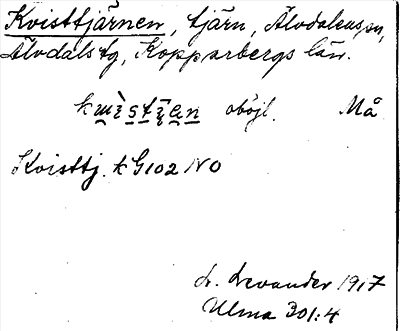 Kvisttjärnen, tjärn, Älvdalens sn,
Älvdals tg, Kopparbergs län.
oböjl. Må
Kvisttj. k G102 NO
L. Levander 1917
Ulma 301:4